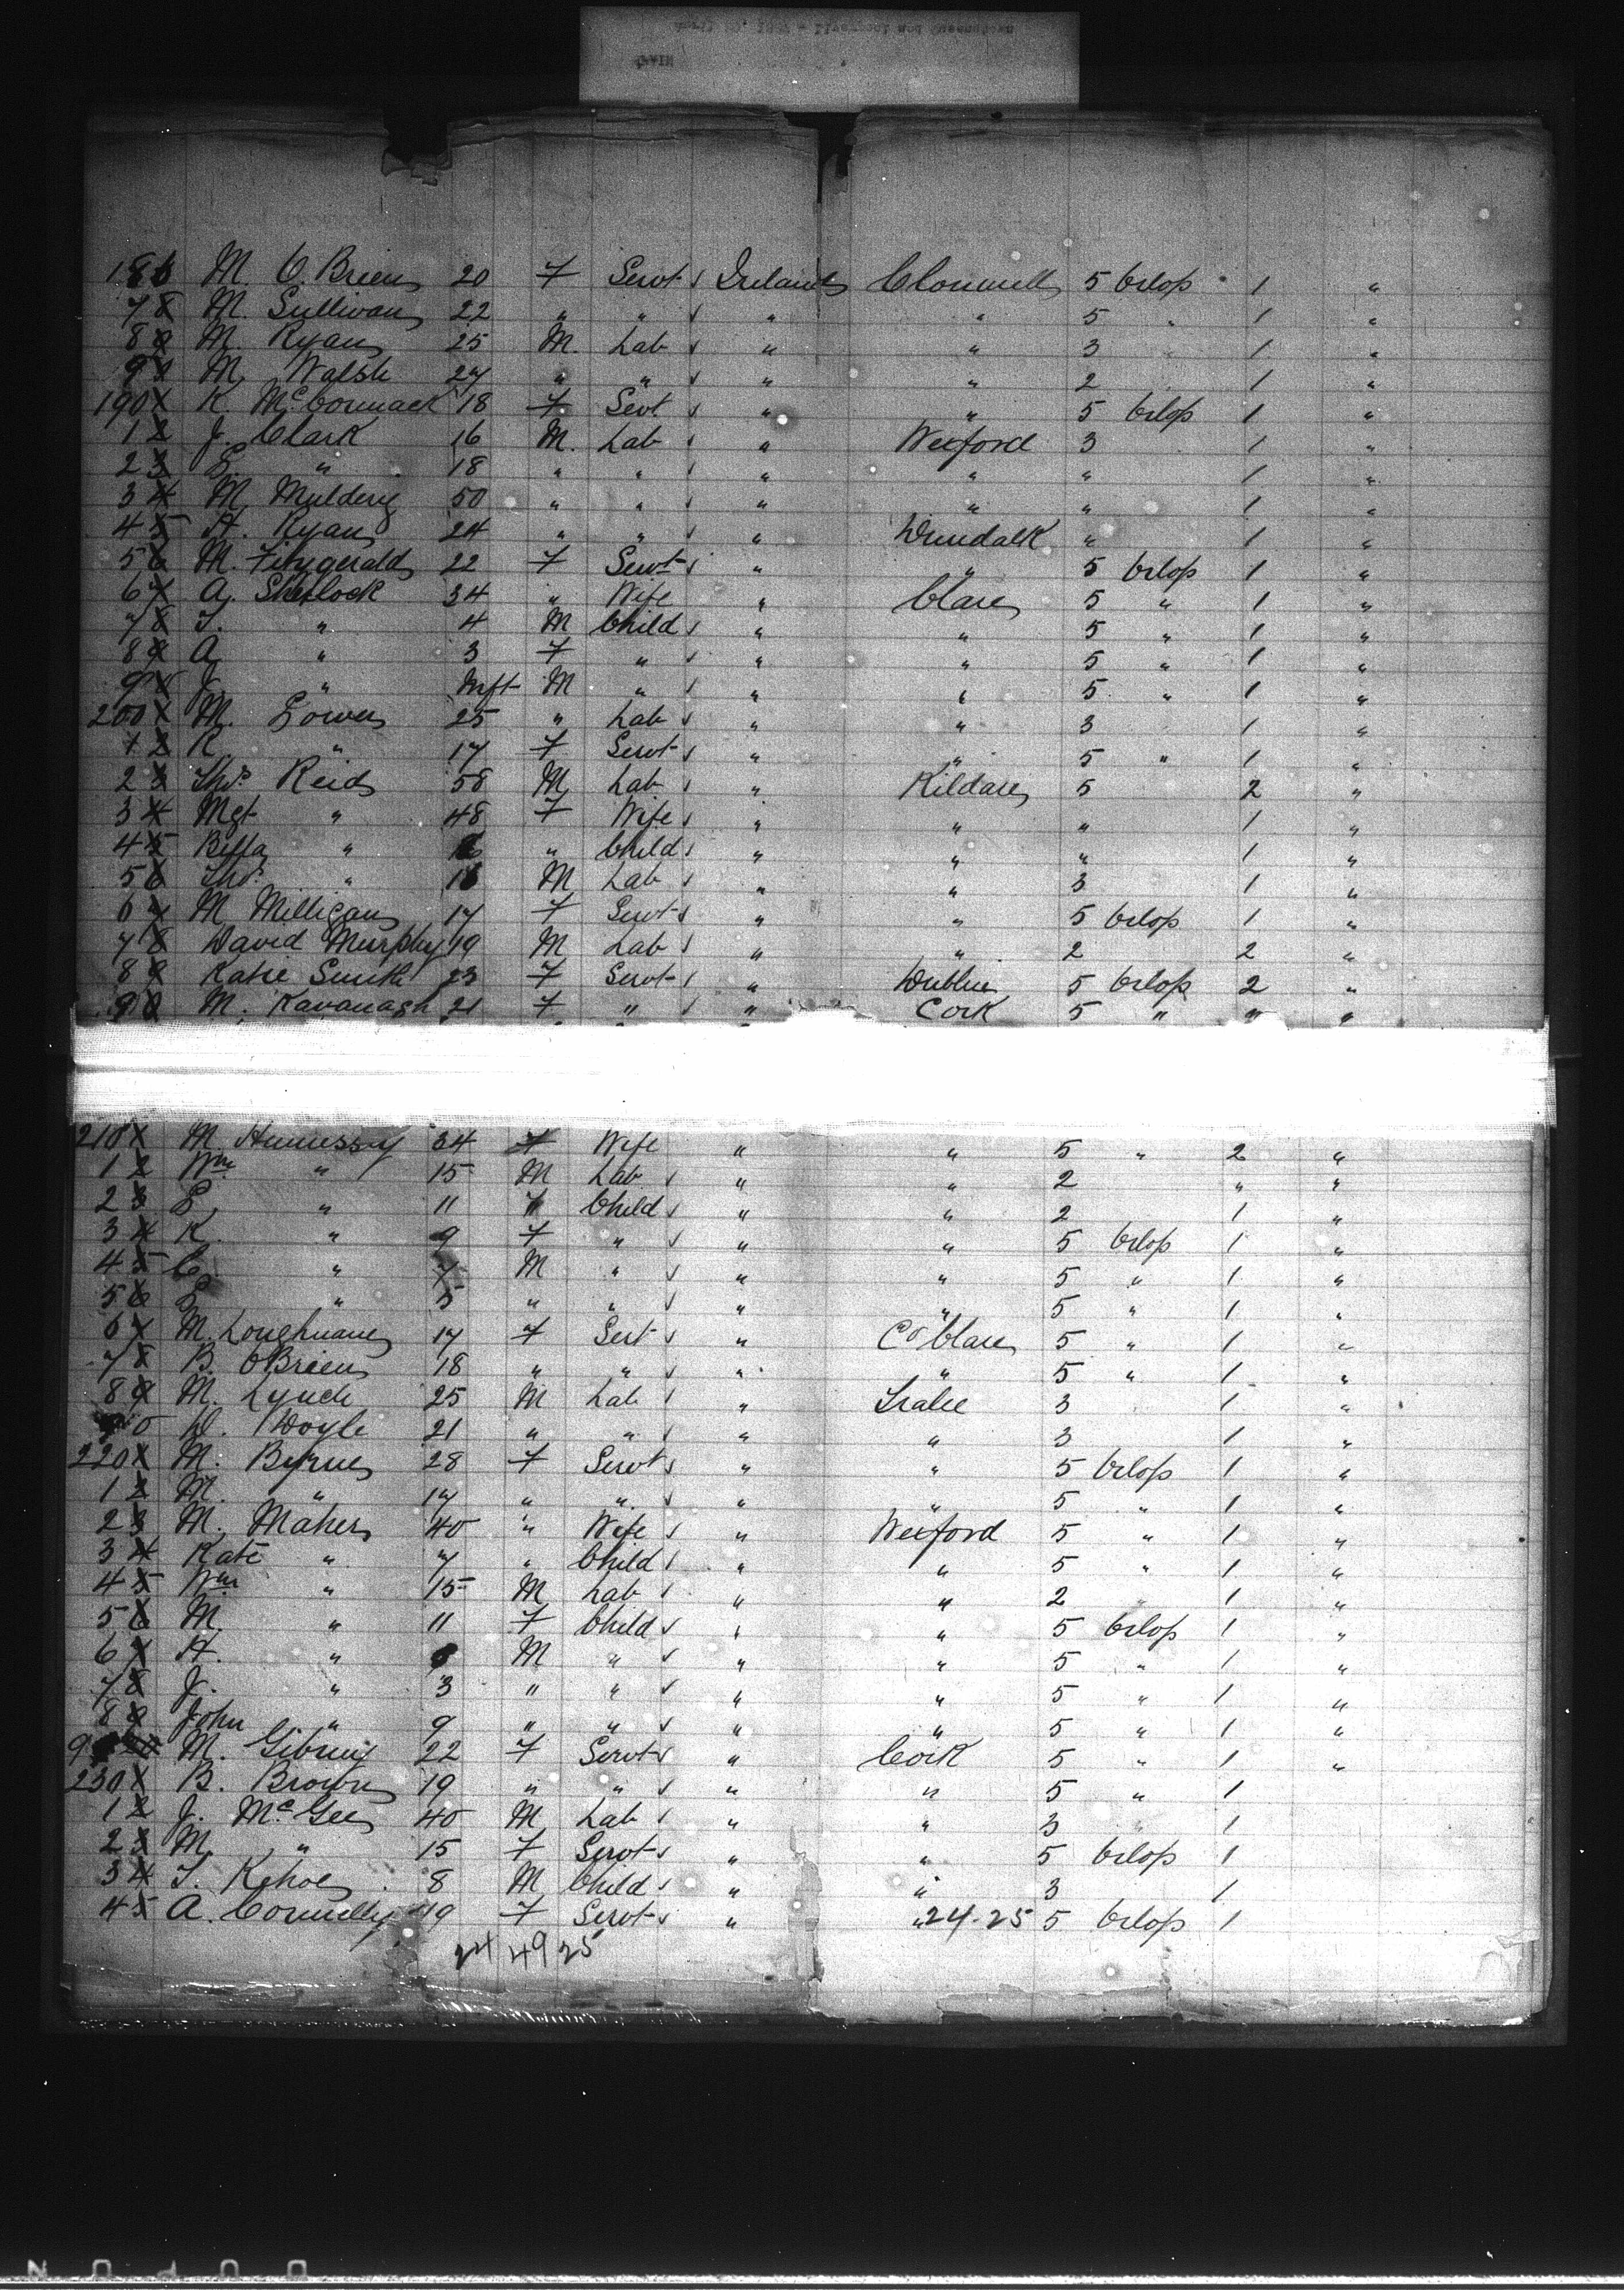 186 M. O Brien 20 F Servt Ireland Clonmell 5 Orlop 1 "
7 M. Sullivan 22 " " " " 5 " 1 "
8 M. Ryan 25 M. Lab " " 3 1 "
9 M. Walsh 27 " " " " 2 1 "
190 K. McCormack 18 F Sevt " " 5 Orlop 1 "
1 J. Clark 16 M. Lab " Wexford 3 1 "
2 " 18 " " " " " 1 "
3 M 50 " " " " " 1 "
4 Ryan 24 " " " Dundalk " 1 "
5 M. Fitzgerald 22 F Servt " " 5 Orlop 1 "
6 A. Sherlock 34 " Wife " Clare 5 " 1 "
7 T. " 4 M Child " " 5 " 1 "
8 A " 3 F " " " 5 " 1 "
9 J. " Inft M " " " 5 " 1 "
200 M. 25 " Lab " " 3 1 "
1 K " 17 F Servt " " 5 " 1 "
2 Thos. Reid 58 M Lab " Kildare 5 2 "
3 Mgt " 48 F Wife " " " 1 "
4 " " Child " " " 1 "
5 Thos. " M Lab " " 3 1 "
6 M Millican 17 F Servt " " 5 Orlop 1 "
7 David Murphy 19 M Lab " " 2 2 "
8 Katie Smith 23 F Servt " Dublin 5 Orlop 2 "
9 M. Kavanagh 21 F " " Cork 5 " " "
210 M Hennessy 34 F Wife " " 5 " 2 "
1 Wm " 15 M Lab " " 2 " "
2 " 11 " Child " " 2 1 "
3 K. " 9 F " " " 5 Orlop 1 "
4 C " 7 M " " " 5 " 1 "
5 " 5 " " " " 5 " 1 "
6 M. Loughnane 17 F Sert " Co Clare 5 " 1 "
7 B. OBrien 18 " " " " 5 " 1 "
8 M. Lynch 25 M Lab " Tralee 3 1 "
D. Doyle 21 " " " " 3 1 "
220 M. Byrne 28 F Servt " " 5 Orlop 1 "
1 M. " 17 " " " " 5 " 1 "
2 M. Maher 40 " Wife " Wexford 5 " 1 "
3 Kate " 7 " Child " " 5 " 1 "
4 Wm " 15 M Lab " " 2 " 1 "
5 M. " 11 F Child " " 5 Orlop 1 "
6 " M " " " 5 " 1 "
7 J. " 3 " " " " 5 " 1 "
8 John " 9 " " " " 5 " 1 "
9 M. Gibney 22 F Servt " Cork 5 " 1 "
230 B. Brown 19 " " " " 5 " 1
1 J. McGee 40 M Lab " " 3 " 1
2 M. " 15 F Servt " " 5 Orlop 1
3 T. Kehoe 8 M Child " " 3 1
4 A. Connelly 19 F Servt " " 24-25 5 Orlop 1
24 49 25